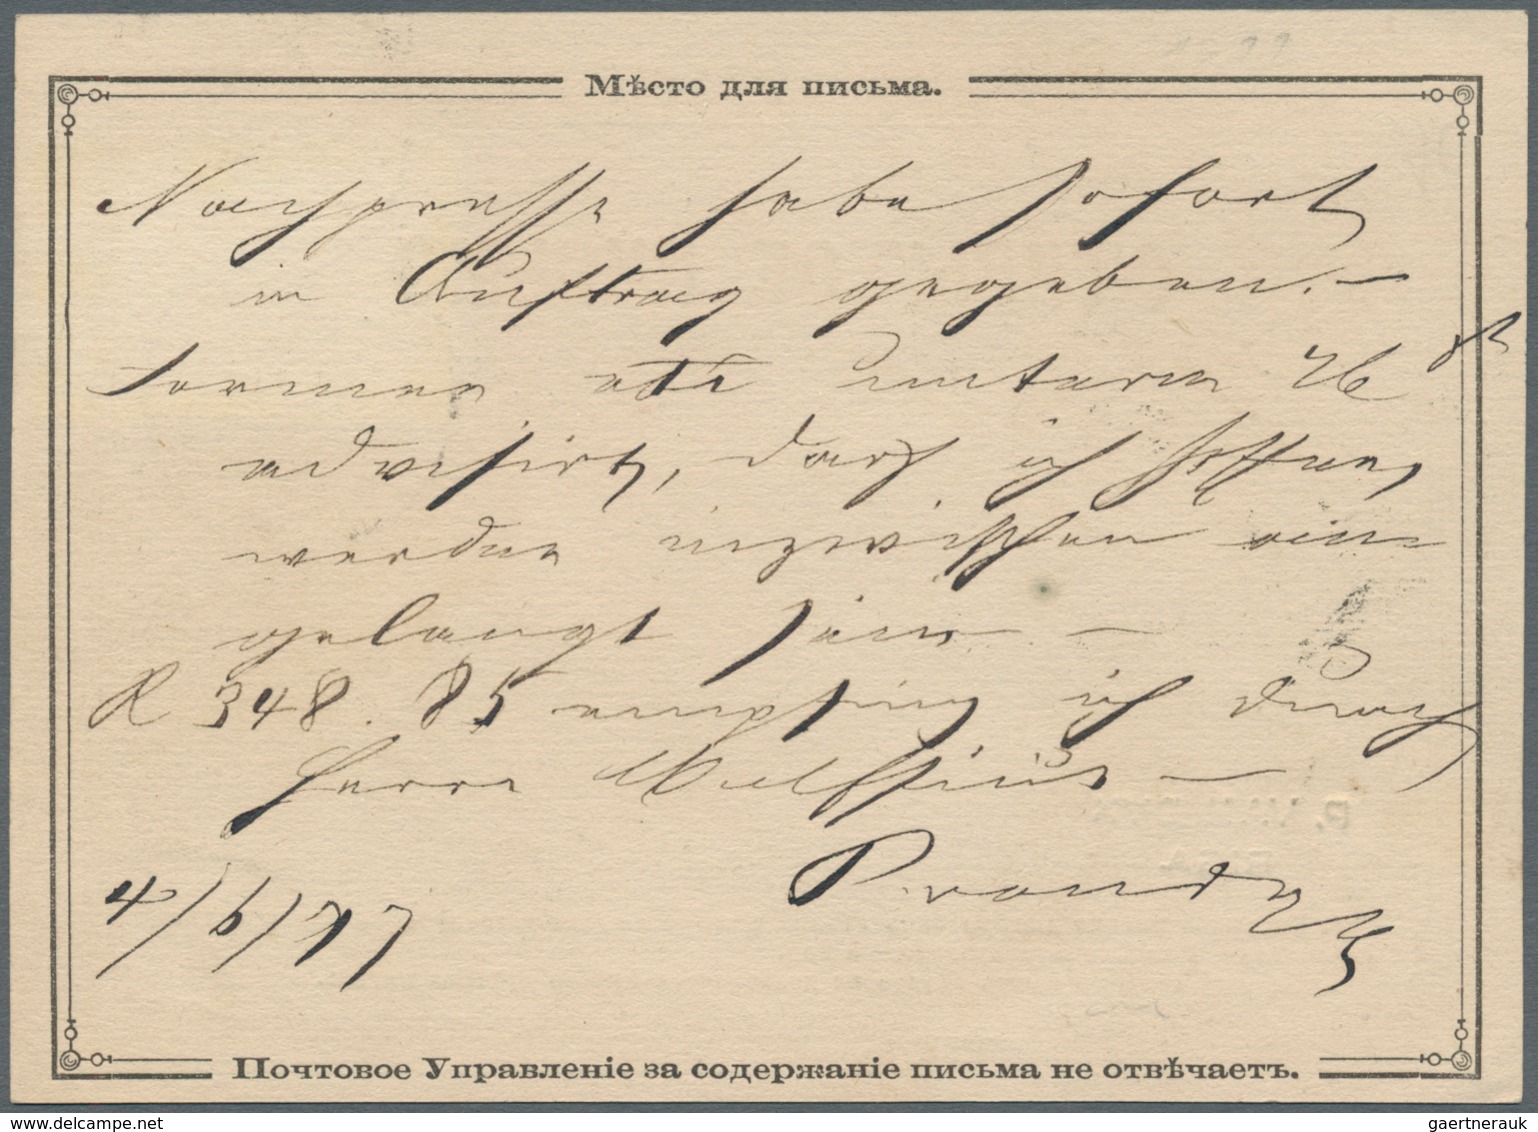 Мѣсто для письма.
Nachpresse habe sofort
in Auftrag gegeben. —
Formen unterm 26
advisirt, darf ich hoffen,
werden inzwischen ein
gelangt sein —
R 348. 85 empfing ich durch
Herrn —
4/6/77
Почтовое Управленіе за содержаніе письма не отвѣчаетъ.
delcampe.net
gaertnerauk